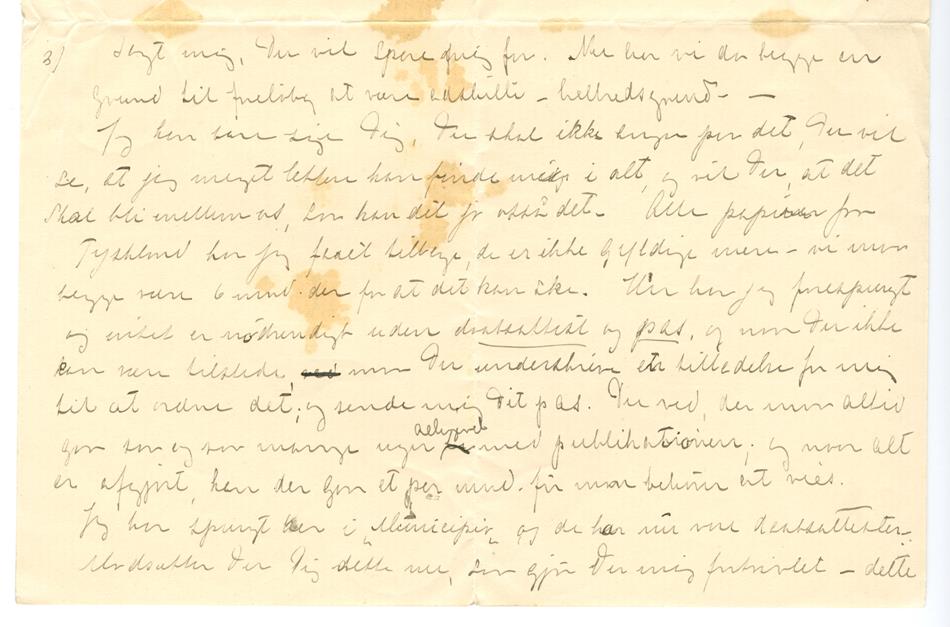 3) Sagt mig, Du vil spare mig for. Nu har vi da begge en
grund til foreløbig at være adskilte – helbredsgrund – —
Jeg kan bare sige Dig, Du skal ikke angre på det, Du vil
se, at jeg meget lettere kan finde mig i alt, og vil Du, at det
skal bli mellem os, så kan det jo også det. Alle papirer fra
Tyskland har jeg fået tilbage, de er ikke gyldige mere – vi må
begge være 6 mnd. der for at det kan ske. Her har jeg forespurgt
og intet er nødvendigt uden dåbsattest og pas, og når Du ikke
kan være tilstede, må Du underskrive en tilladelse for mig
til at ordne det, og sende mig Dit pas. Du ved, der må altid
gå så og så mange uger alligevel med publikationen; og når alt
er afgjort, kan der gå et par mnd. før man behøver at vies.
Jeg har spurgt her i "Municipio" og de har nu vore dåbsattester.
Modsætter Du Dig dette nu, så gjør Du mig fortvivlet – dette